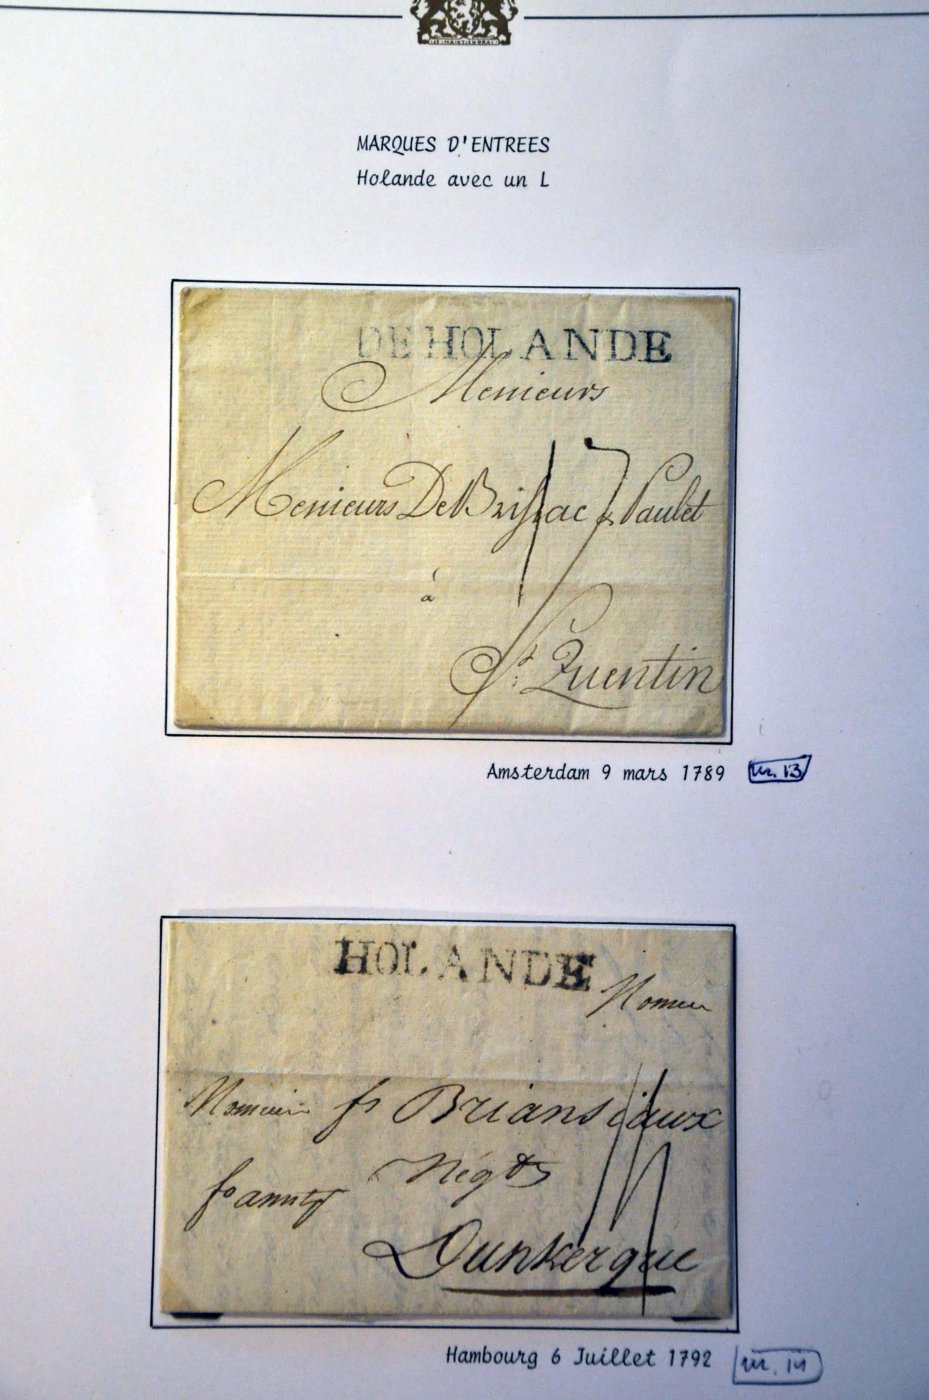 MARQUES D'ENTREES
Holande avec un L
DE HOLANDE
Menieurs
Menieurs De Brissac & Paulet
17
à
St. Quentin
Amsterdam 9 mars 1789
nr. 13
HOLANDE
Monsieur
Monsieur fs Briansiaux
Négt
Dunkerque
Hambourg 6 Juillet 1792
nr. 14